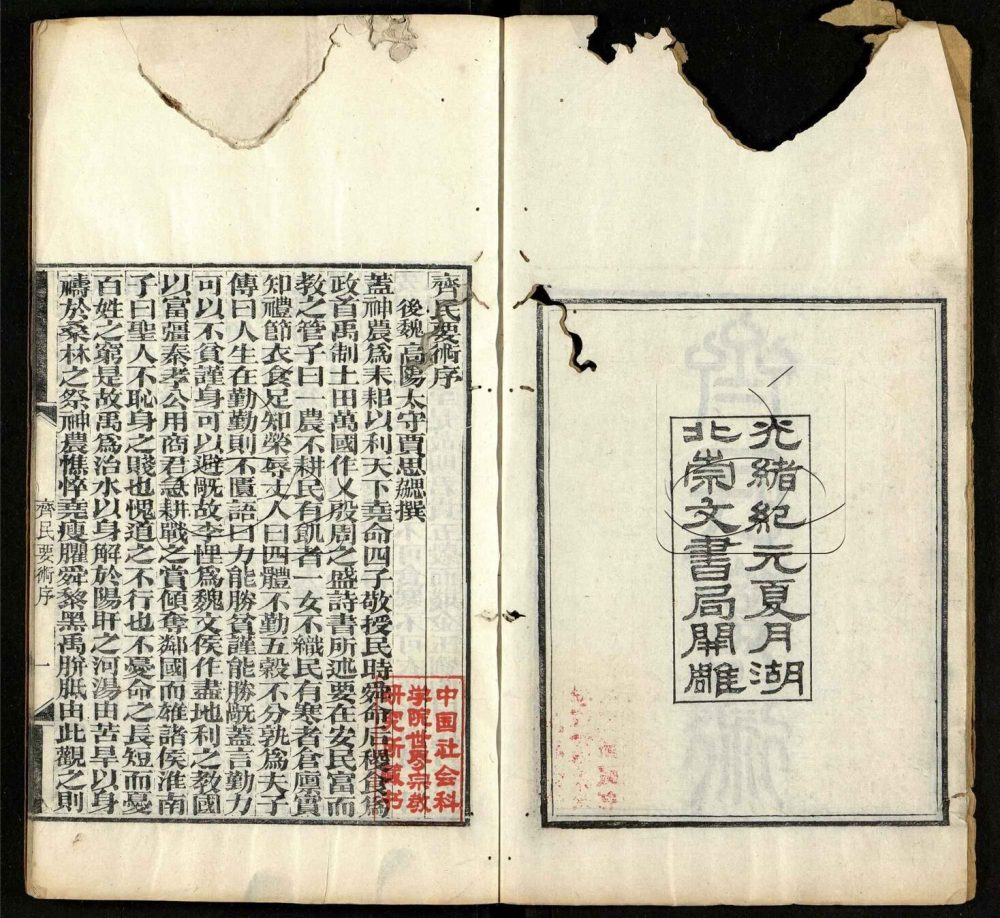 光緒紀元夏月湖
北崇文書局開雕
齊民要術序
後魏高陽太守賈思勰撰
蓋神農爲耒耜以利天下堯命四子敬授民時舜命后稷食爲
政首禹制土田萬國作乂殷周之盛詩書所述要在安民富而
教之管子曰一農不耕民有飢者一女不織民有寒者倉廩實
知禮節衣食足知榮辱丈人曰四體不勤五穀不分孰爲夫子
傳曰人生在勤勤則不匱語曰力能勝貧謹能勝禍蓋言勤力
可以不貧謹身可以避禍故李悝爲魏文侯作盡地利之教國
以富彊秦孝公用商君急耕戰之賞傾奪鄰國而雄諸侯淮南
子曰聖人不恥身之賤也愧道之不行也不憂命之長短而憂
百姓之窮是故禹爲治水以身解於陽盱之河湯由苦旱以身
禱於桑林之祭神農憔悴堯瘦臞舜黎黑禹胼胝由此觀之則
齊民要術序 一
中国社会科
学院世界宗教
研究所藏书